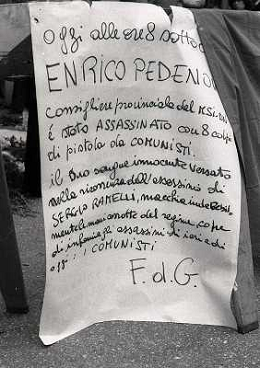 oggi alle ore 8 sotto
ENRICO PEDENOVI
consigliere provinciale del MSI-DN
è stato ASSASSINATO con 8 colpi
di pistola da COMUNISTI
il suo sangue innocente versato
nella ricorrenza dell'assassinio di
SERGIO RAMELLI, macchia indelebil-
mente le mani sporche del regime, copre
di infamia gli assassini di ieri e di
oggi: i COMUNISTI
F.d.G.